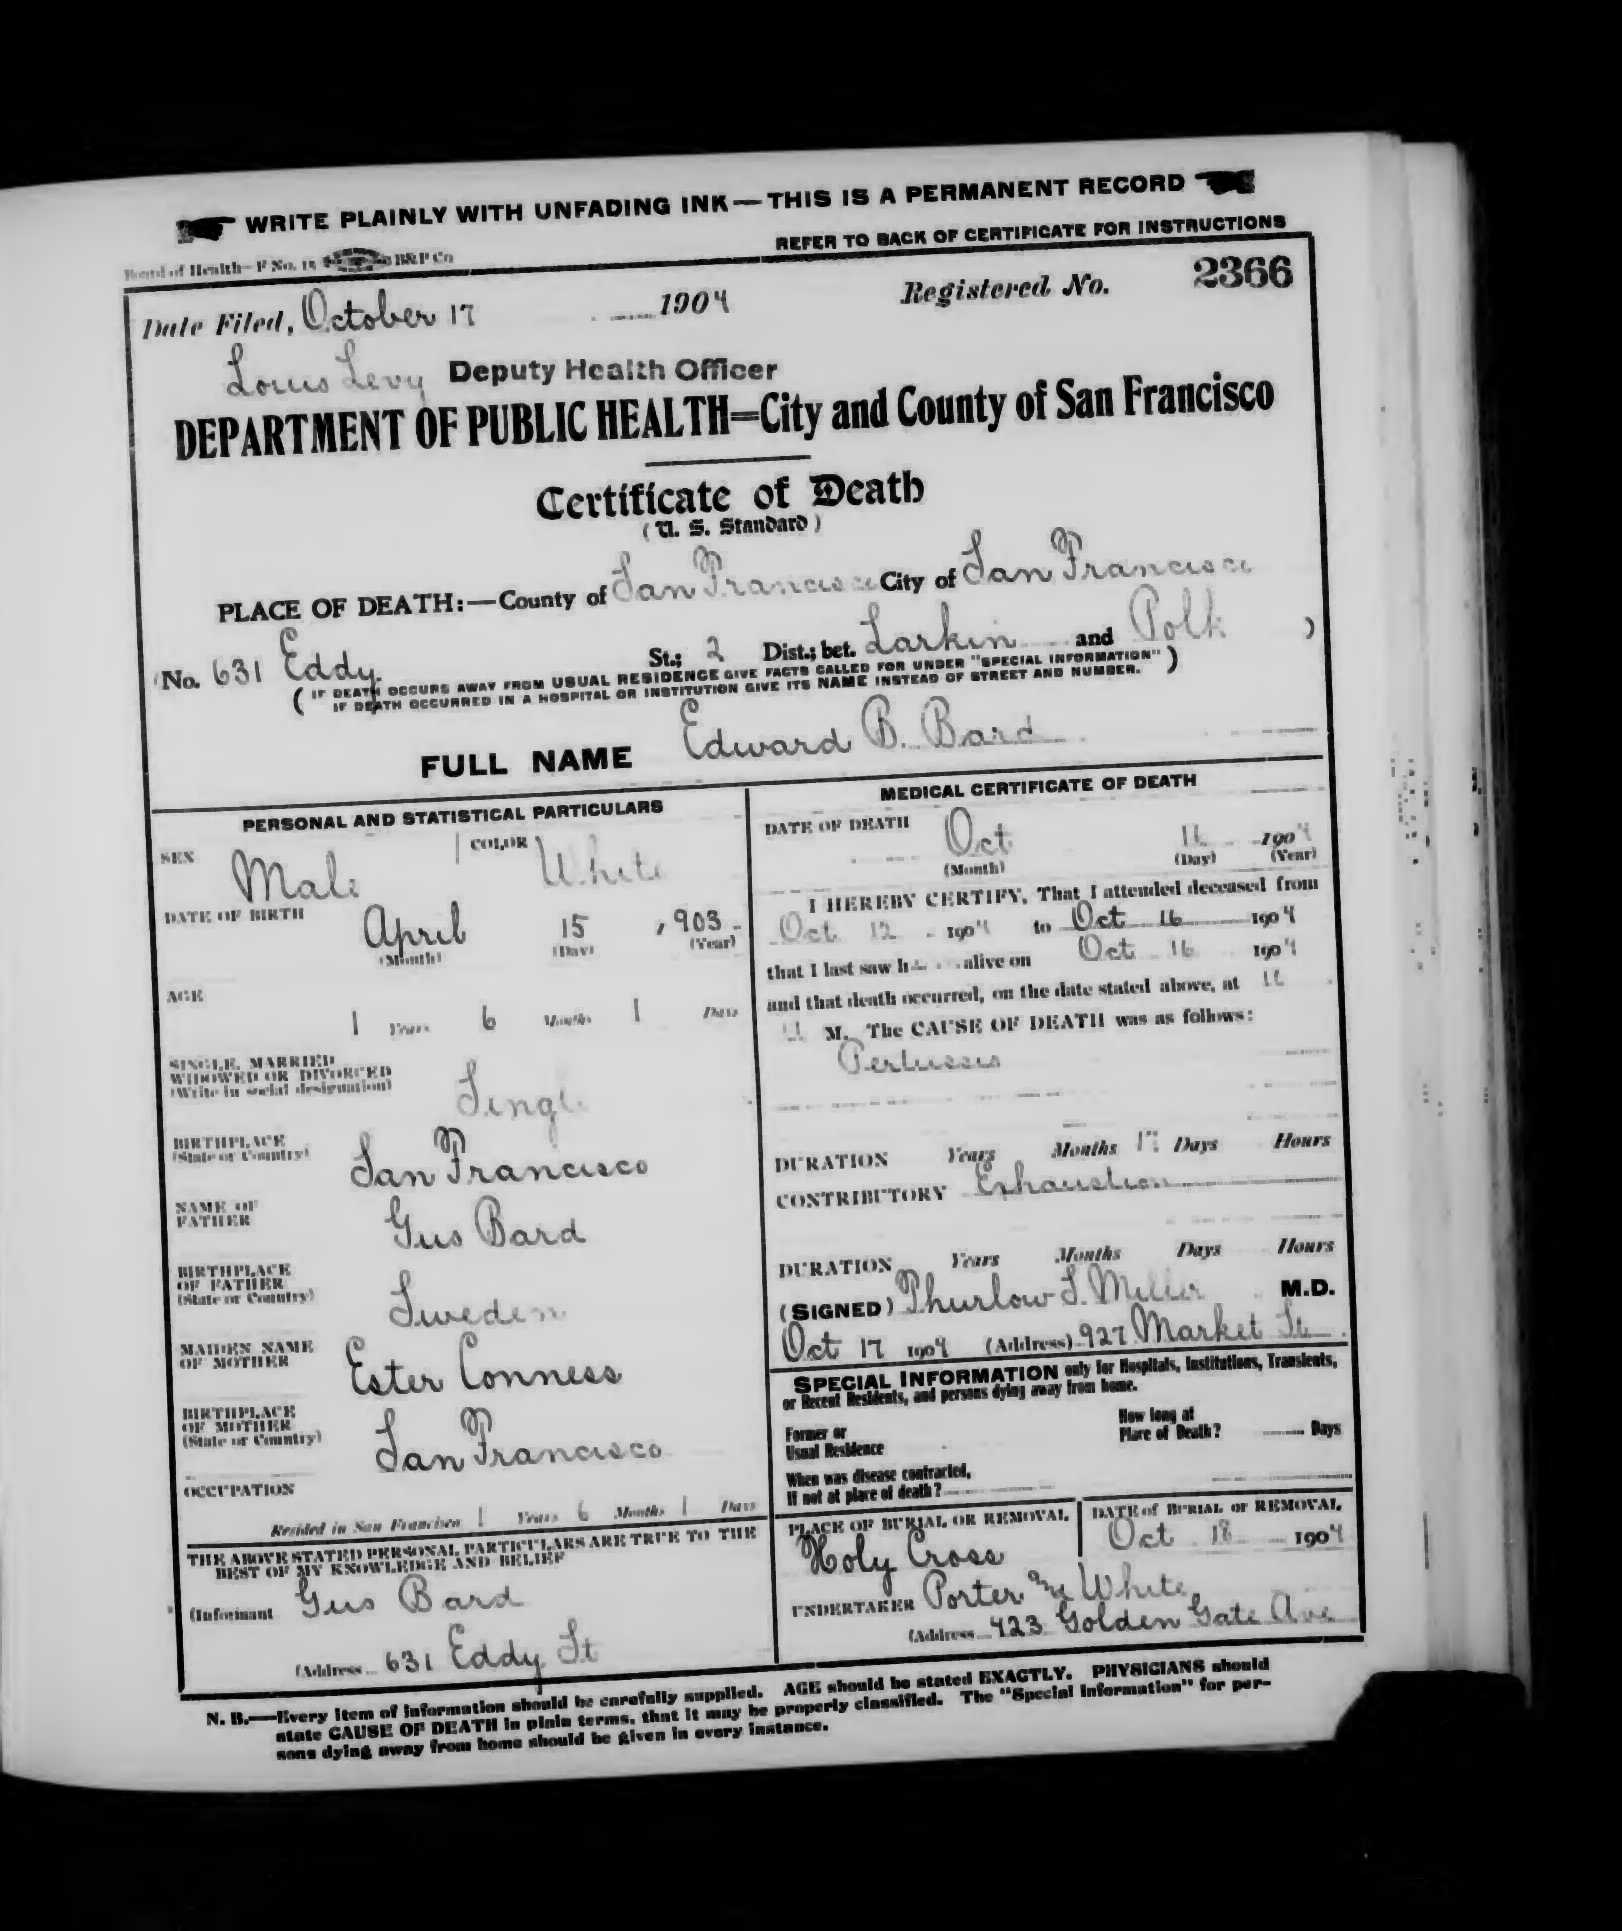 WRITE PLAINLY WITH UNFADING INK — THIS IS A PERMANENT RECORD
REFER TO BACK OF CERTIFICATE FOR INSTRUCTIONS
Board of Health—F No. 15 B&P Co
Date Filed, October 17 1904 Registered No. 2366
Louis Levy Deputy Health Officer
DEPARTMENT OF PUBLIC HEALTH=City and County of San Francisco
Certificate of Death
(U. S. Standard)
PLACE OF DEATH:—County of San Francisco City of San Francisco
(No. 631 Eddy St.; 2 Dist.; bet. Larkin and Polk )
( IF DEATH OCCURS AWAY FROM USUAL RESIDENCE GIVE FACTS CALLED FOR UNDER "SPECIAL INFORMATION" )
IF DEATH OCCURRED IN A HOSPITAL OR INSTITUTION GIVE ITS NAME INSTEAD OF STREET AND NUMBER.
FULL NAME Edward B. Bard
PERSONAL AND STATISTICAL PARTICULARS
SEX Male COLOR White
DATE OF BIRTH April 15 , 903
(Month) (Day) (Year)
AGE
1 Years 6 Months 1 Days
SINGLE, MARRIED
WIDOWED OR DIVORCED
(Write in social designation) Single
BIRTHPLACE
(State or Country) San Francisco
NAME OF
FATHER Gus Bard
BIRTHPLACE
OF FATHER
(State or Country) Sweden
MAIDEN NAME
OF MOTHER Ester Conness
BIRTHPLACE
OF MOTHER
(State or Country) San Francisco
OCCUPATION
Resided in San Francisco 1 Years 6 Months 1 Days
THE ABOVE STATED PERSONAL PARTICULARS ARE TRUE TO THE
BEST OF MY KNOWLEDGE AND BELIEF
(Informant Gus Bard
(Address 631 Eddy St
MEDICAL CERTIFICATE OF DEATH
DATE OF DEATH Oct 16 1904
(Month) (Day) (Year)
I HEREBY CERTIFY, That I attended deceased from
Oct 12 1904 to Oct 16 1904
that I last saw h alive on Oct 16 1904
and that death occurred, on the date stated above, at 11
M. The CAUSE OF DEATH was as follows:
Pertussis
DURATION Years Months Days Hours
CONTRIBUTORY Exhaustion
DURATION Years Months Days Hours
(SIGNED) Thurlow S. Miller M.D.
Oct 17 1904 (Address) 927 Market St
SPECIAL INFORMATION only for Hospitals, Institutions, Transients,
or Recent Residents, and persons dying away from home.
Former or
Usual Residence
How long at
Place of Death? Days
When was disease contracted,
If not at place of death?
PLACE OF BURIAL OR REMOVAL
Holy Cross
DATE of BURIAL or REMOVAL
Oct 18 1904
UNDERTAKER Porter and White
(Address 423 Golden Gate Ave
N. B.—Every item of information should be carefully supplied. AGE should be stated EXACTLY. PHYSICIANS should
state CAUSE OF DEATH in plain terms, that it may be properly classified. The "Special Information" for per-
sons dying away from home should be given in every instance.